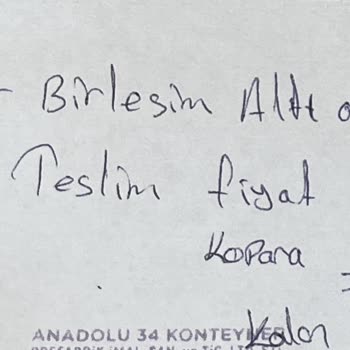 - Birlesim Altı o
Teslim fiyat
Kopara
ANADOLU 34 KONTEYNER
Kalan